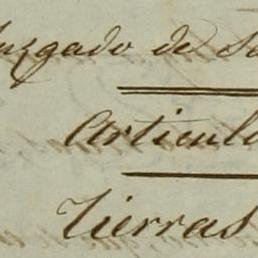 Juzgado de Sa
Articulo
Tierras